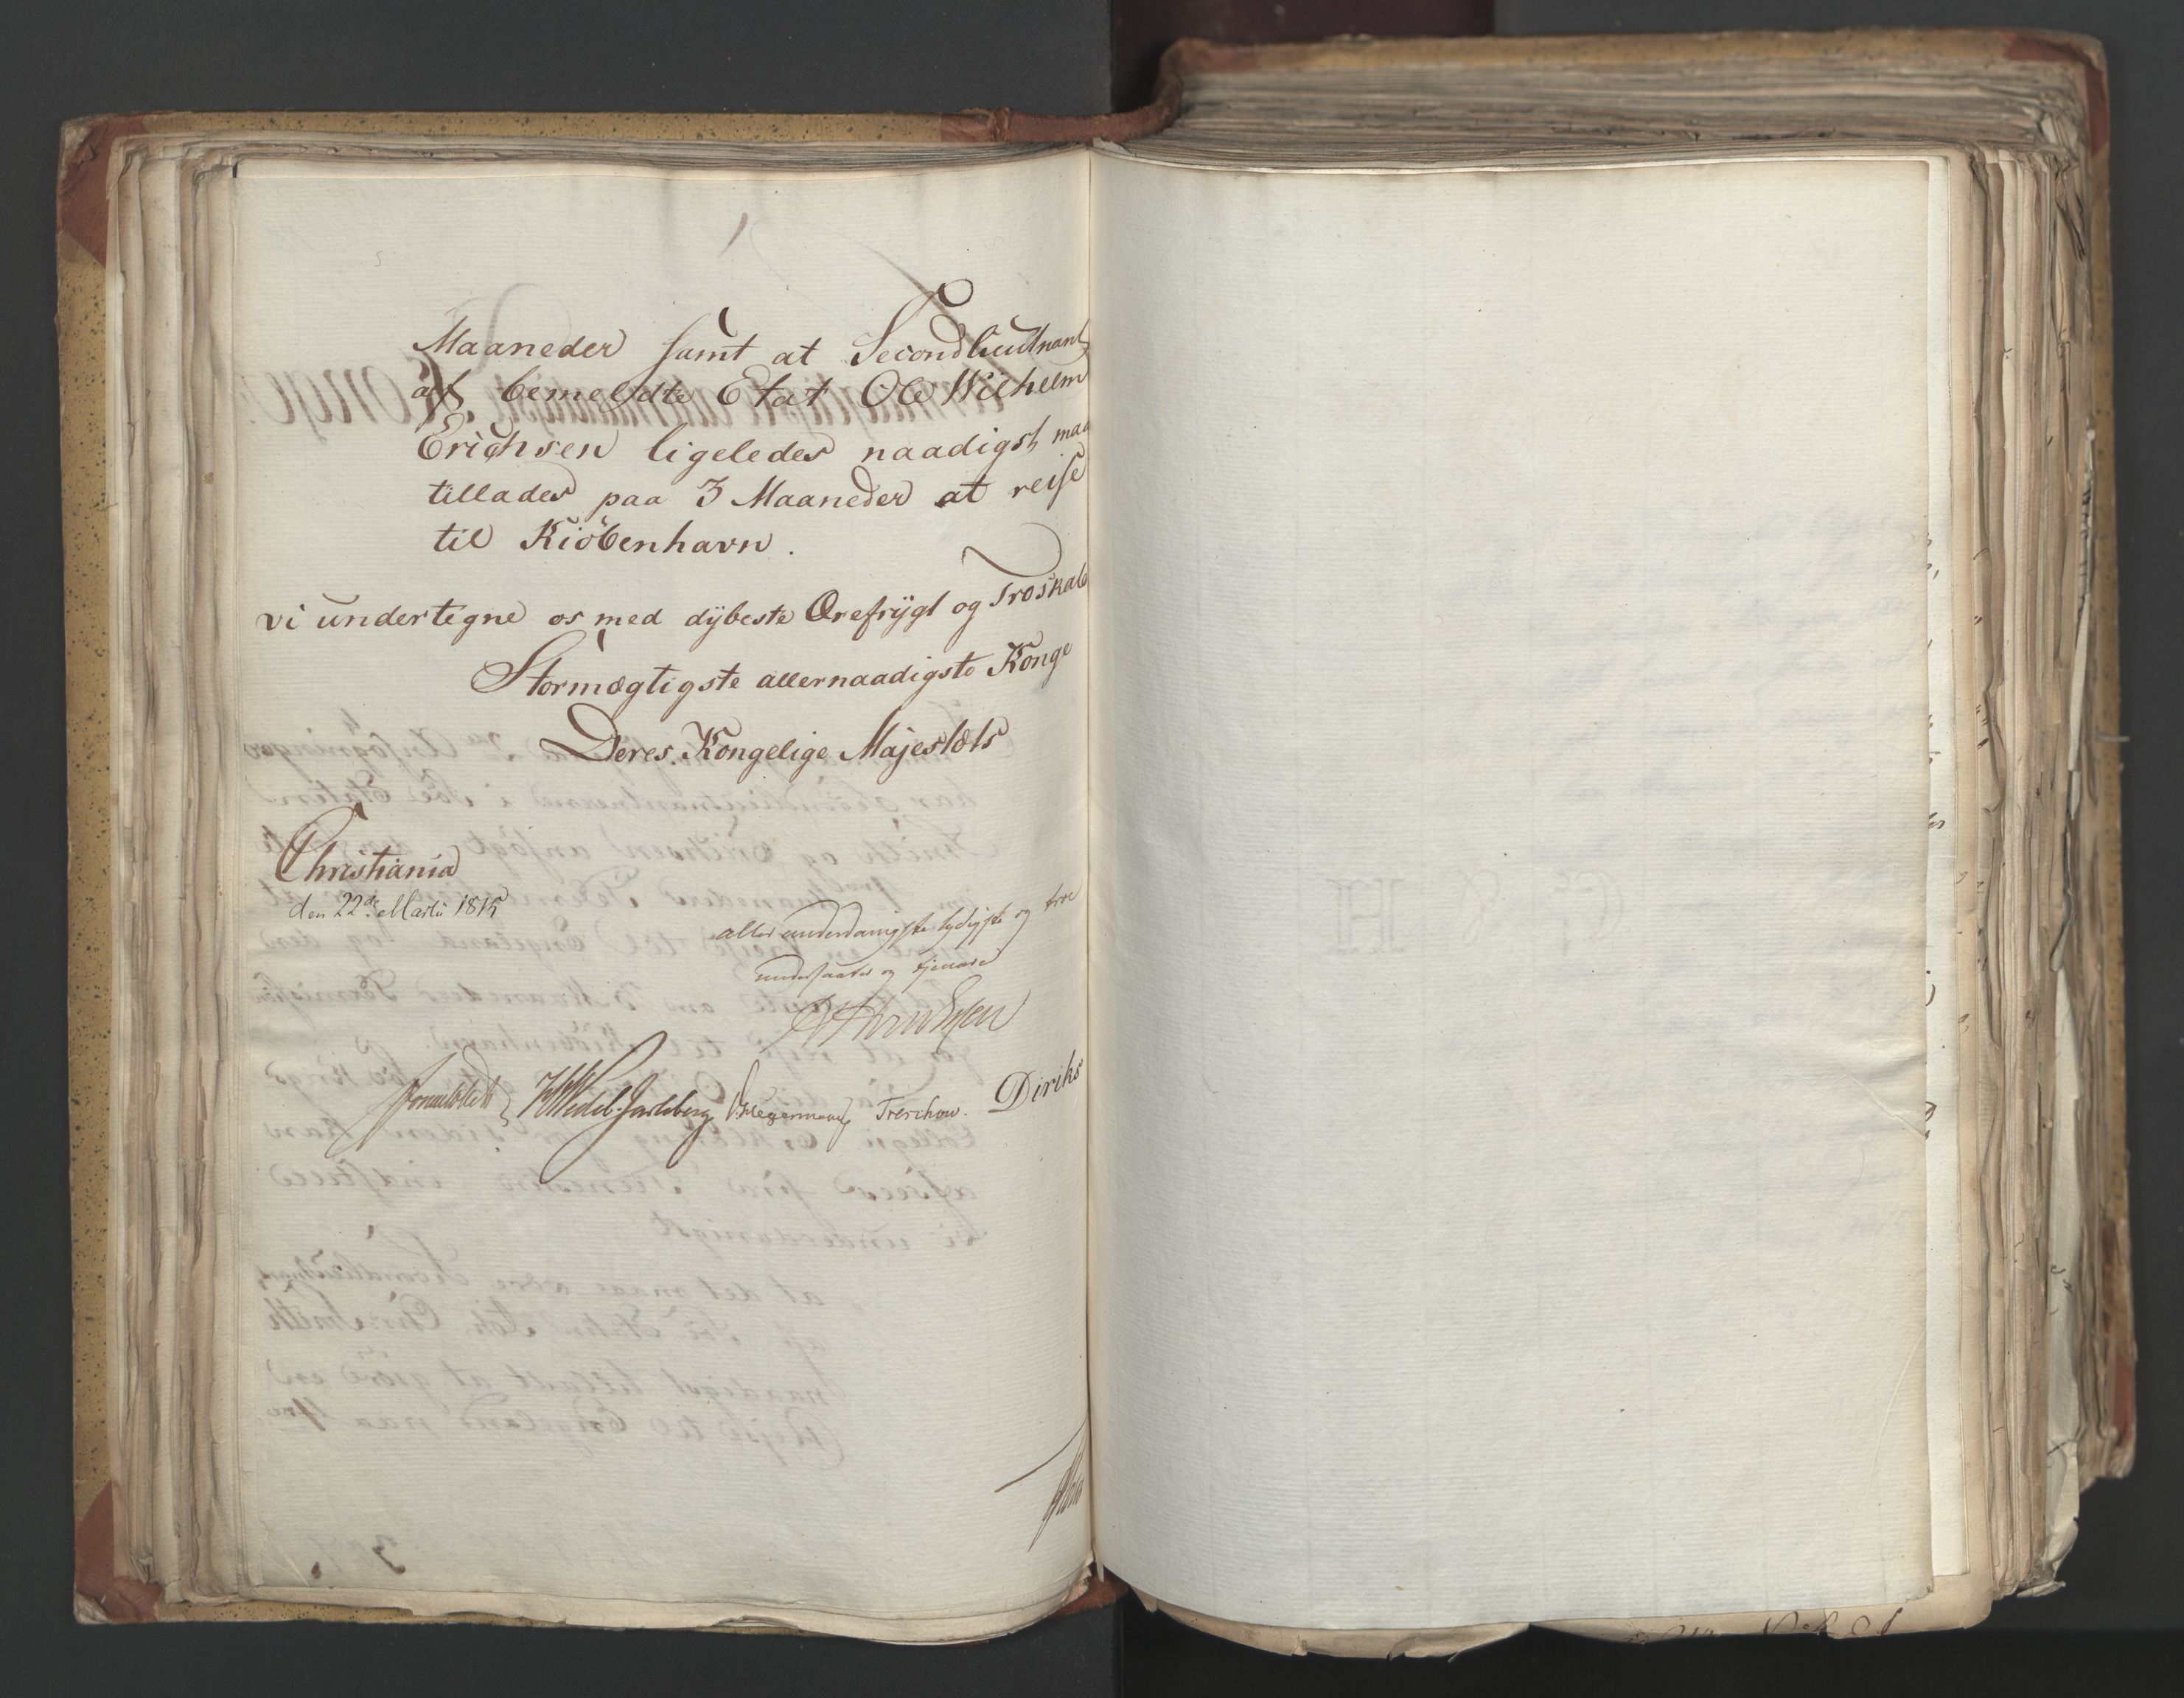 Maaneder samt at Secondlieutnant
af bemeldte Etat Ole Wilhelm
Erichsen ligeledes naadigst maa
tillades paa 3 Maaneder at reise
til Kiöbenhavn.
vi undertegne os med dÿbeste Ærefrÿgt og Troskab
Stormægtigste allernaadigste Konge
Deres Kongelige Majestæts
Christiania
den 22de Martii 1815
allerunderdanigste lydigste og troe
undersaatter og tjenere
Sommerfeldt HWedel-Jarlsberg Hegermann Treschow. Diriks